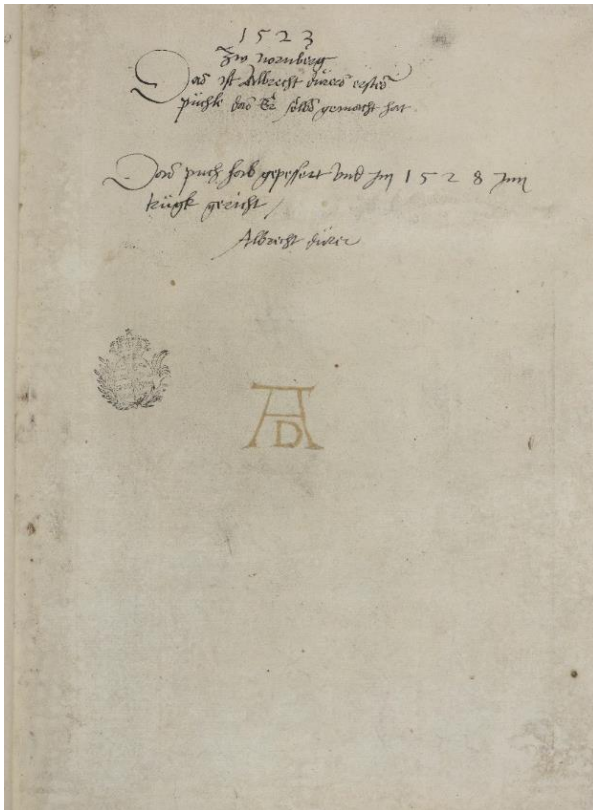 1523
Zw nornberg
Das ist Albrecht dürers erstes
püchle das Er selbs gemacht hat
Das puch hab gepessert vnd Im 1528 Inn
trügk gericht
Albrecht dürer
AD